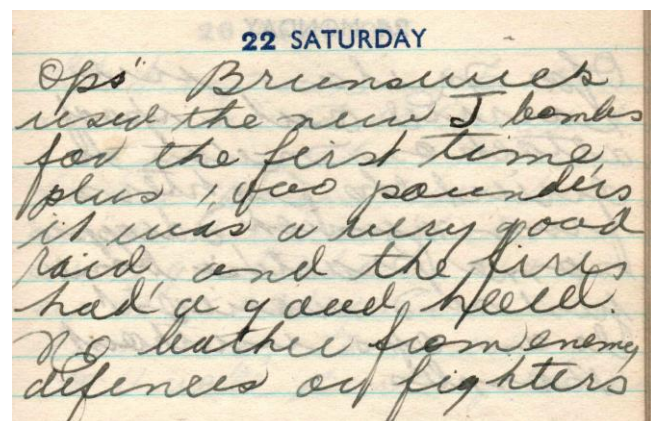 22 SATURDAY
Ops" Brunswick
used the new J bombs
for the first time,
plus 1,000 pounders
it was a very good
raid, and the fires
had a good heeld.
NO bother from enemy
defences or fighters